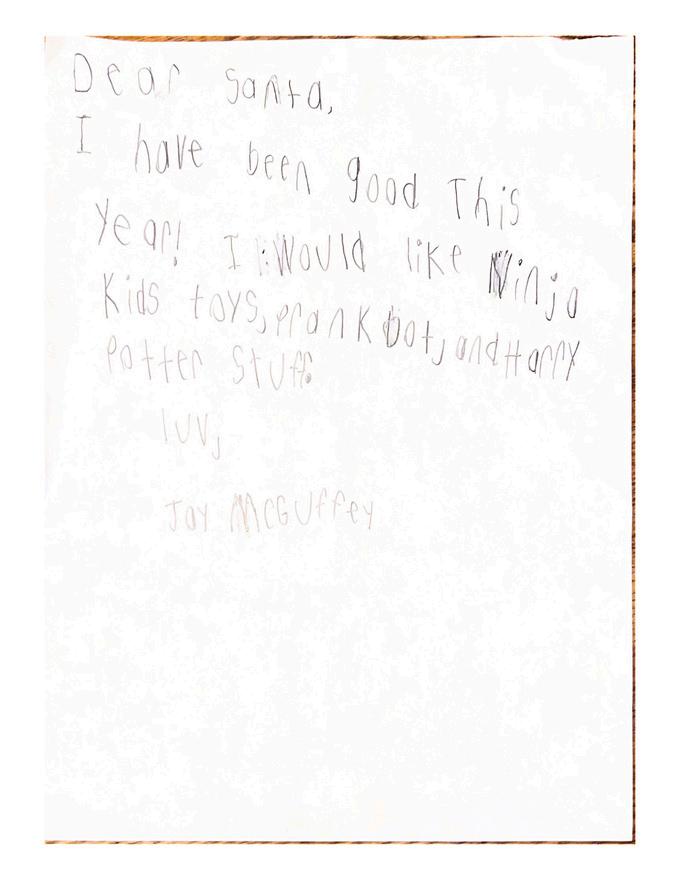 Dear Santa,
I have been good This
Year! I Would like Ninja
Kids toys, prank bot, and Harry
Potter Stuff.
luv,
Jay McGuffey